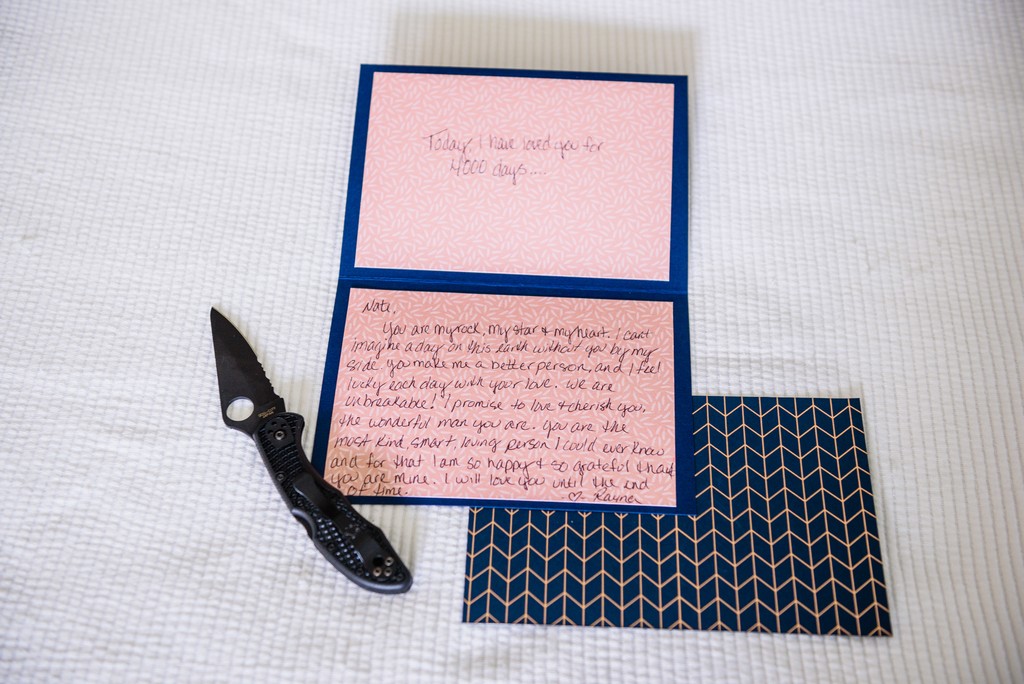 Today, I have loved you for
4000 days....
Nate,
You are my rock, my star & my heart. I can't
imagine a day on this earth without you by my
side. You make me a better person, and I feel
lucky each day with your love. We are
unbreakable! I promise to love & cherish you,
the wonderful man you are. You are the
most kind, smart, loving person I could ever know
and for that I am so happy & so grateful that
you are mine. I will love you until the end
of time. -♡- Rayna